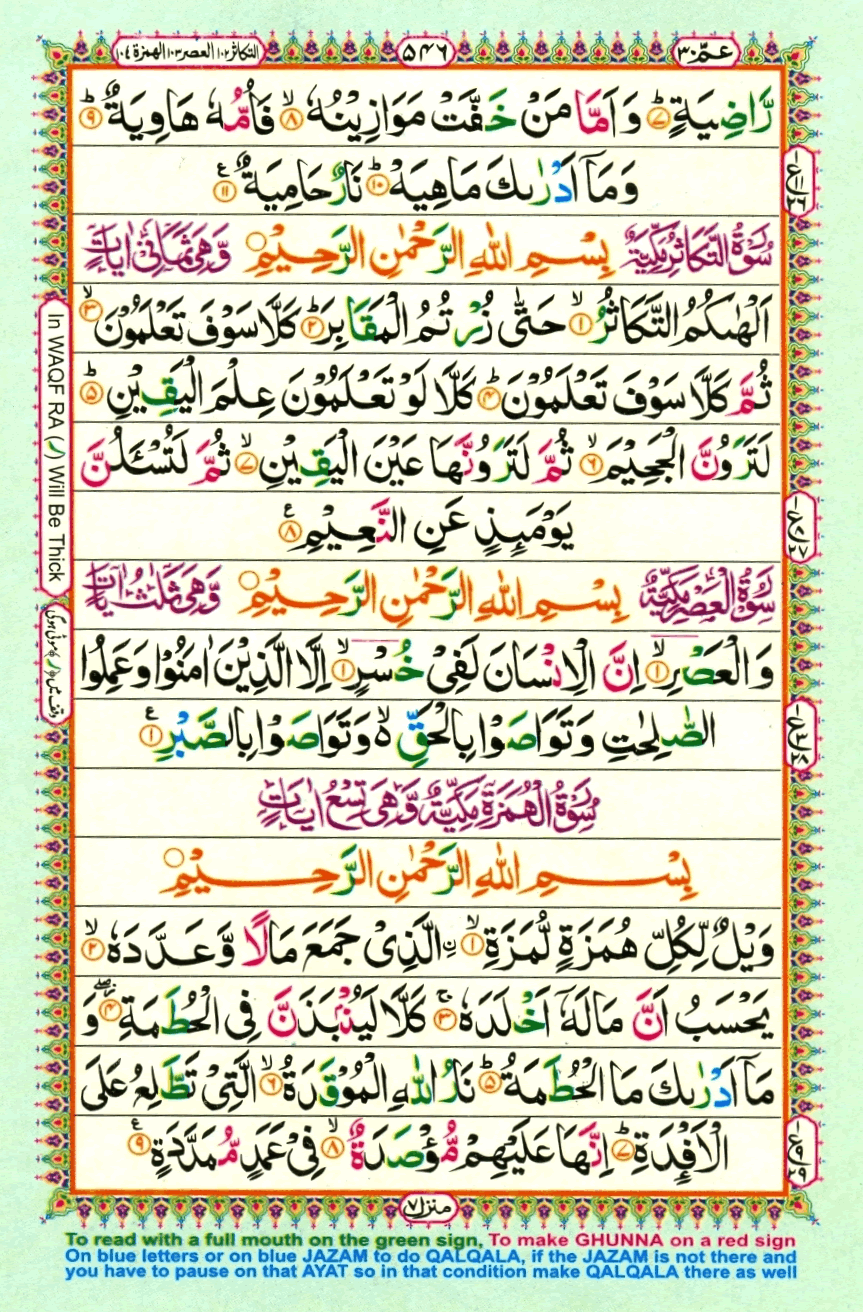 التكاثر١٠٢ العصر١٠٣ الهمزة١٠٤
۵۴۶
عمّ۳۰
رَّاضِيَةٍ ؕ‏﴿۷﴾ وَ اَمَّا مَنۡ خَفَّتۡ مَوَازِيۡنُهٗ ۙ‏﴿۸﴾ فَاُمُّهٗ هَاوِيَةٌ ؕ‏﴿۹﴾
وَمَاۤ اَدۡرٰٮكَ مَاهِيَهۡ ؕ‏﴿۱۰﴾ نَارٌ حَامِيَةٌ‏﴿۱۱﴾
سُوۡرَةُ التَّكَاثُرِ مَكِّيَّةٌ بِسۡمِ اللهِ الرَّحۡمٰنِ الرَّحِيۡمِ وَّهِىَ ثَمَانِىۡ اٰيَاتٍ
اَلۡهٰٮكُمُ التَّكَاثُرُ ۙ‏﴿۱﴾ حَتّٰى زُرۡتُمُ الۡمَقَابِرَ ؕ‏﴿۲﴾ كَلَّا سَوۡفَ تَعۡلَمُوۡنَ ۙ‏﴿۳﴾
ثُمَّ كَلَّا سَوۡفَ تَعۡلَمُوۡنَ ؕ‏﴿۴﴾ كَلَّا لَوۡ تَعۡلَمُوۡنَ عِلۡمَ الۡيَقِيۡنِ ؕ‏﴿۵﴾
لَتَرَوُنَّ الۡجَحِيۡمَ ۙ‏﴿۶﴾ ثُمَّ لَتَرَوُنَّهَا عَيۡنَ الۡيَقِيۡنِ ۙ‏﴿۷﴾ ثُمَّ لَتُسۡـَٔـلُنَّ
يَوۡمَٮِٕذٍ عَنِ النَّعِيۡمِ‏﴿۸﴾
سُوۡرَةُ الۡعَصۡرِ مَكِّيَّةٌ بِسۡمِ اللهِ الرَّحۡمٰنِ الرَّحِيۡمِ وَّهِىَ ثَلٰثُ اٰيَاتٍ
وَالۡعَصۡرِ ۙ‏﴿۱﴾ اِنَّ الۡاِنۡسَانَ لَفِىۡ خُسۡرٍ ۙ‏﴿۱﴾ اِلَّا الَّذِيۡنَ اٰمَنُوۡا وَعَمِلُوا
الصّٰلِحٰتِ وَتَوَاصَوۡا بِالۡحَقِّ ۙ وَتَوَاصَوۡا بِالصَّبۡرِ‏﴿۱﴾
سُوۡرَةُ الۡهُمَزَةِ مَكِّيَّةٌ وَّهِىَ تِسۡعُ اٰيَاتٍ
بِسۡمِ اللهِ الرَّحۡمٰنِ الرَّحِيۡمِ
وَيۡلٌ لِّـكُلِّ هُمَزَةٍ لُّمَزَةِ ۙ‏﴿۱﴾ ۨالَّذِىۡ جَمَعَ مَالًا وَّعَدَّدَهٗ ۙ‏﴿۲﴾
يَحۡسَبُ اَنَّ مَالَهٗۤ اَخۡلَدَهٗ‌ ۚ‏﴿۳﴾ كَلَّا لَيُنۡۢبَذَنَّ فِى الۡحُطَمَةِ ‏﴿۴﴾ وَ
مَاۤ اَدۡرٰٮكَ مَا الۡحُطَمَةُ ؕ‏﴿۵﴾ نَارُ اللهِ الۡمُوۡقَدَةُ ۙ‏﴿۶﴾ الَّتِىۡ تَطَّلِعُ عَلَى
الۡاَفۡـِٕدَةِ ؕ‏﴿۷﴾ اِنَّهَا عَلَيۡهِمۡ مُّؤۡصَدَةٌ ۙ‏﴿۸﴾ فِىۡ عَمَدٍ مُّمَدَّدَةٍ‏﴿۹﴾
منزل۷
In WAQF RA (ر) Will Be Thick
وقف میں (ر) موٹی ہوگی
To read with a full mouth on the green sign, To make GHUNNA on a red sign
On blue letters or on blue JAZAM to do QALQALA, if the JAZAM is not there and
you have to pause on that AYAT so in that condition make QALQALA there as well